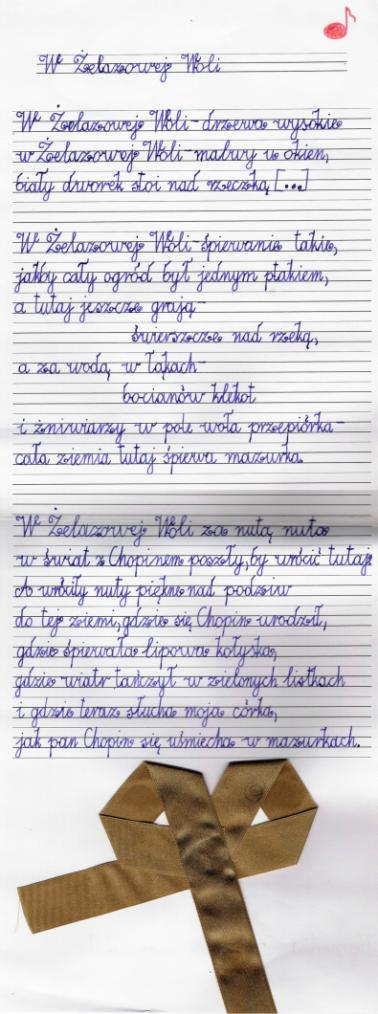 W Żelazowej Woli
W Żelazowej Woli - drzewa wysokie
w Żelazowej Woli - malwy u okien,
biały dworek stoi nad rzeczką [...]
W Żelazowej Woli - śpiewanie takie,
jakby cały ogród był jednym ptakiem,
a tutaj jeszcze grają -
świerszcze nad rzeką,
a za wodą w łąkach -
bocianów klekot
i żniwiarzy w pole woła przepiórka -
cała ziemia tutaj śpiewa mazurka.
W Żelazowej Woli za nutą nuta
w świat z Chopinem poszły, by wrócić tutaj.
A wróciły nuty piękne nad podziw
do tej ziemi, gdzie się Chopin urodził,
gdzie śpiewała lipowa kołyska,
gdzie wiatr tańczył w zielonych listkach
i gdzie teraz słucha moja córka,
jak pan Chopin się uśmiecha w mazurkach.